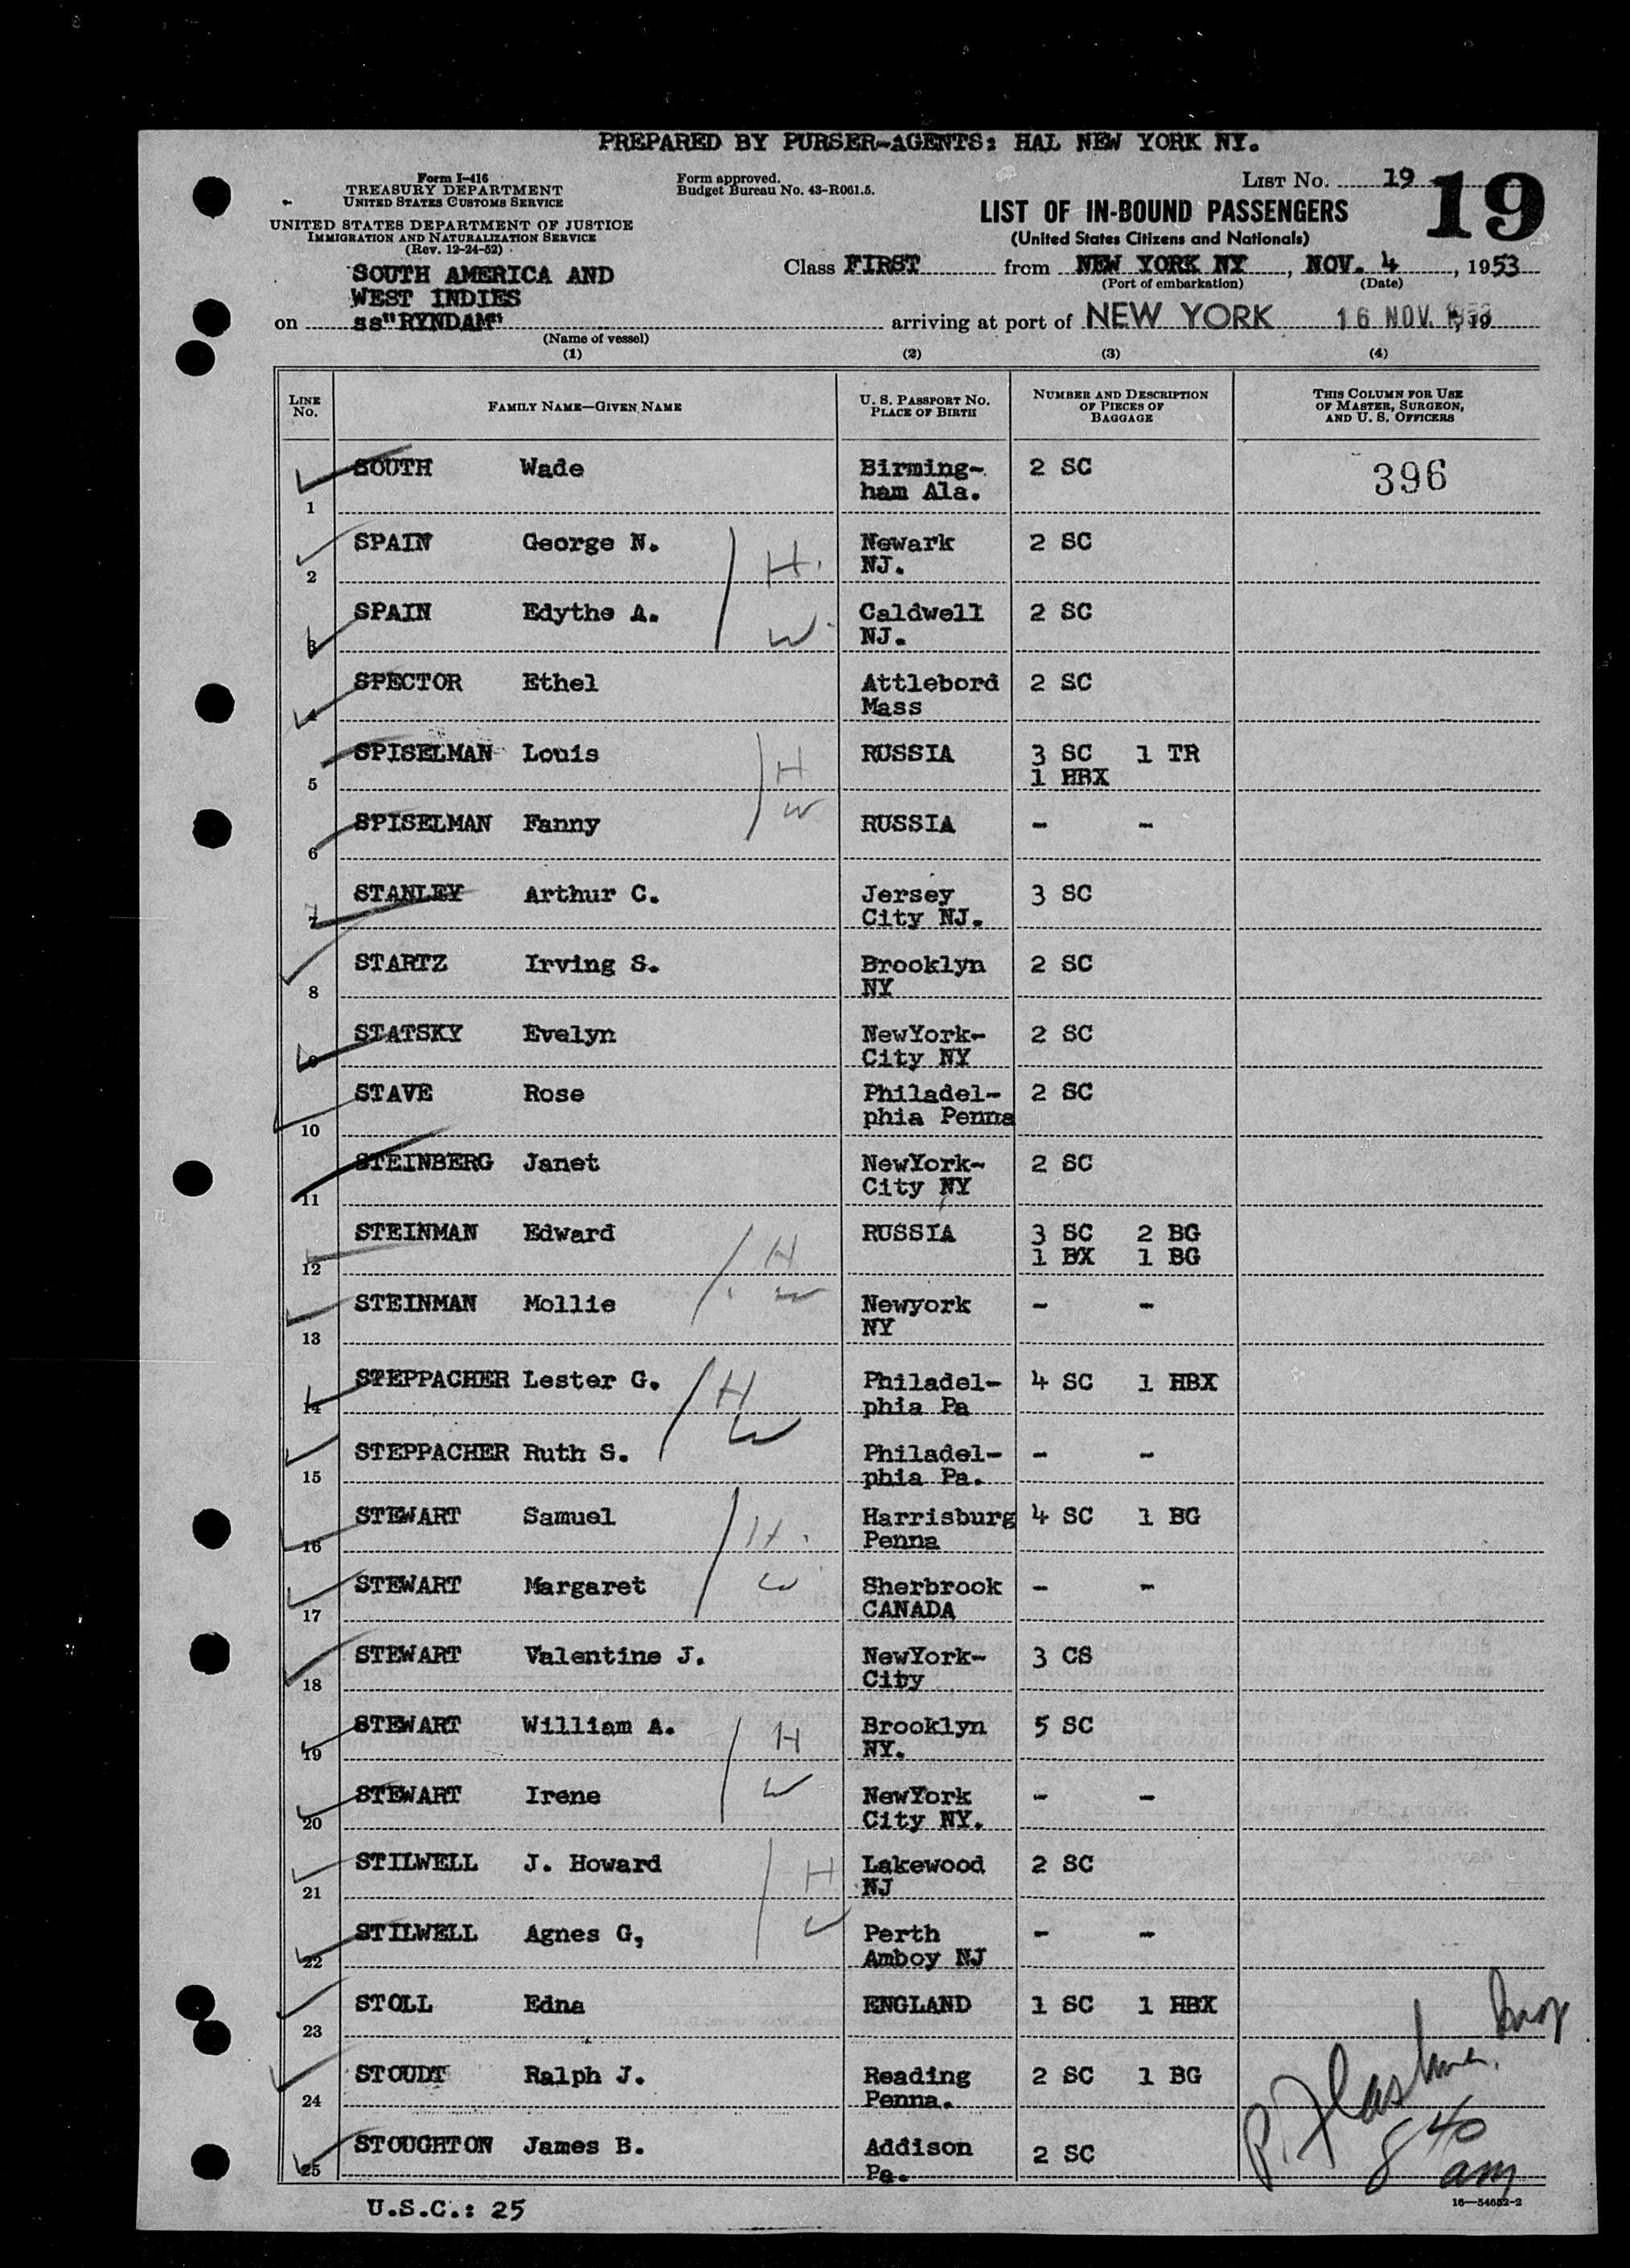 PREPARED BY PURSER-AGENTS: HAL NEW YORK NY.
Form I-416
TREASURY DEPARTMENT
UNITED STATES CUSTOMS SERVICE
UNITED STATES DEPARTMENT OF JUSTICE
IMMIGRATION AND NATURALIZATION SERVICE
(Rev. 12-24-52)
Form approved.
Budget Bureau No. 43-R061.5.
LIST NO. 19
19
LIST OF IN-BOUND PASSENGERS
(United States Citizens and Nationals)
SOUTH AMERICA AND
WEST INDIES
Class FIRST from NEW YORK NY, NOV. 4, 1953
(Port of embarkation) (Date)
on ss"RYNDAM" arriving at port of NEW YORK 16 NOV. 1953, 19
(Name of vessel)
(1) (2) (3) (4)
LINE NO. FAMILY NAME—GIVEN NAME U. S. PASSPORT NO. PLACE OF BIRTH NUMBER AND DESCRIPTION OF PIECES OF BAGGAGE THIS COLUMN FOR USE OF MASTER, SURGEON, AND U. S. OFFICERS
1 SOUTH Wade Birming- 2 SC 396
ham Ala.
2 SPAIN George N. H. Newark 2 SC
NJ.
3 SPAIN Edythe A. W. Caldwell 2 SC
NJ.
4 SPECTOR Ethel Attlebord 2 SC
Mass
5 SPISELMAN Louis H RUSSIA 3 SC 1 TR
1 HBX
6 SPISELMAN Fanny W RUSSIA - -
7 STANLEY Arthur C. Jersey 3 SC
City NJ.
8 STARTZ Irving S. Brooklyn 2 SC
NY
9 STATSKY Evelyn NewYork- 2 SC
City NY
10 STAVE Rose Philadel- 2 SC
phia Penna
11 STEINBERG Janet NewYork- 2 SC
City NY
12 STEINMAN Edward H RUSSIA 3 SC 2 BG
1 BX 1 BG
13 STEINMAN Mollie W Newyork - -
NY
14 STEPPACHER Lester G. H Philadel- 4 SC 1 HBX
phia Pa
15 STEPPACHER Ruth S. W Philadel- - -
phia Pa.
16 STEWART Samuel H. Harrisburg 4 SC 1 BG
Penna
17 STEWART Margaret W Sherbrook - -
CANADA
18 STEWART Valentine J. NewYork- 3 CS
City
19 STEWART William A. H Brooklyn 5 SC
NY.
20 STEWART Irene W NewYork - -
City NY.
21 STILWELL J. Howard H Lakewood 2 SC
NJ
22 STILWELL Agnes G, W Perth - -
Amboy NJ
23 STOLL Edna ENGLAND 1 SC 1 HBX
24 STOUDT Ralph J. Reading 2 SC 1 BG
Penna.
25 STOUGHTON James B. Addison 2 SC
Pa.
8 40
am
U.S.C.: 25
16—54632-2